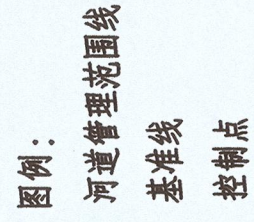 图例：
河道管理范围线
基准线
控制点